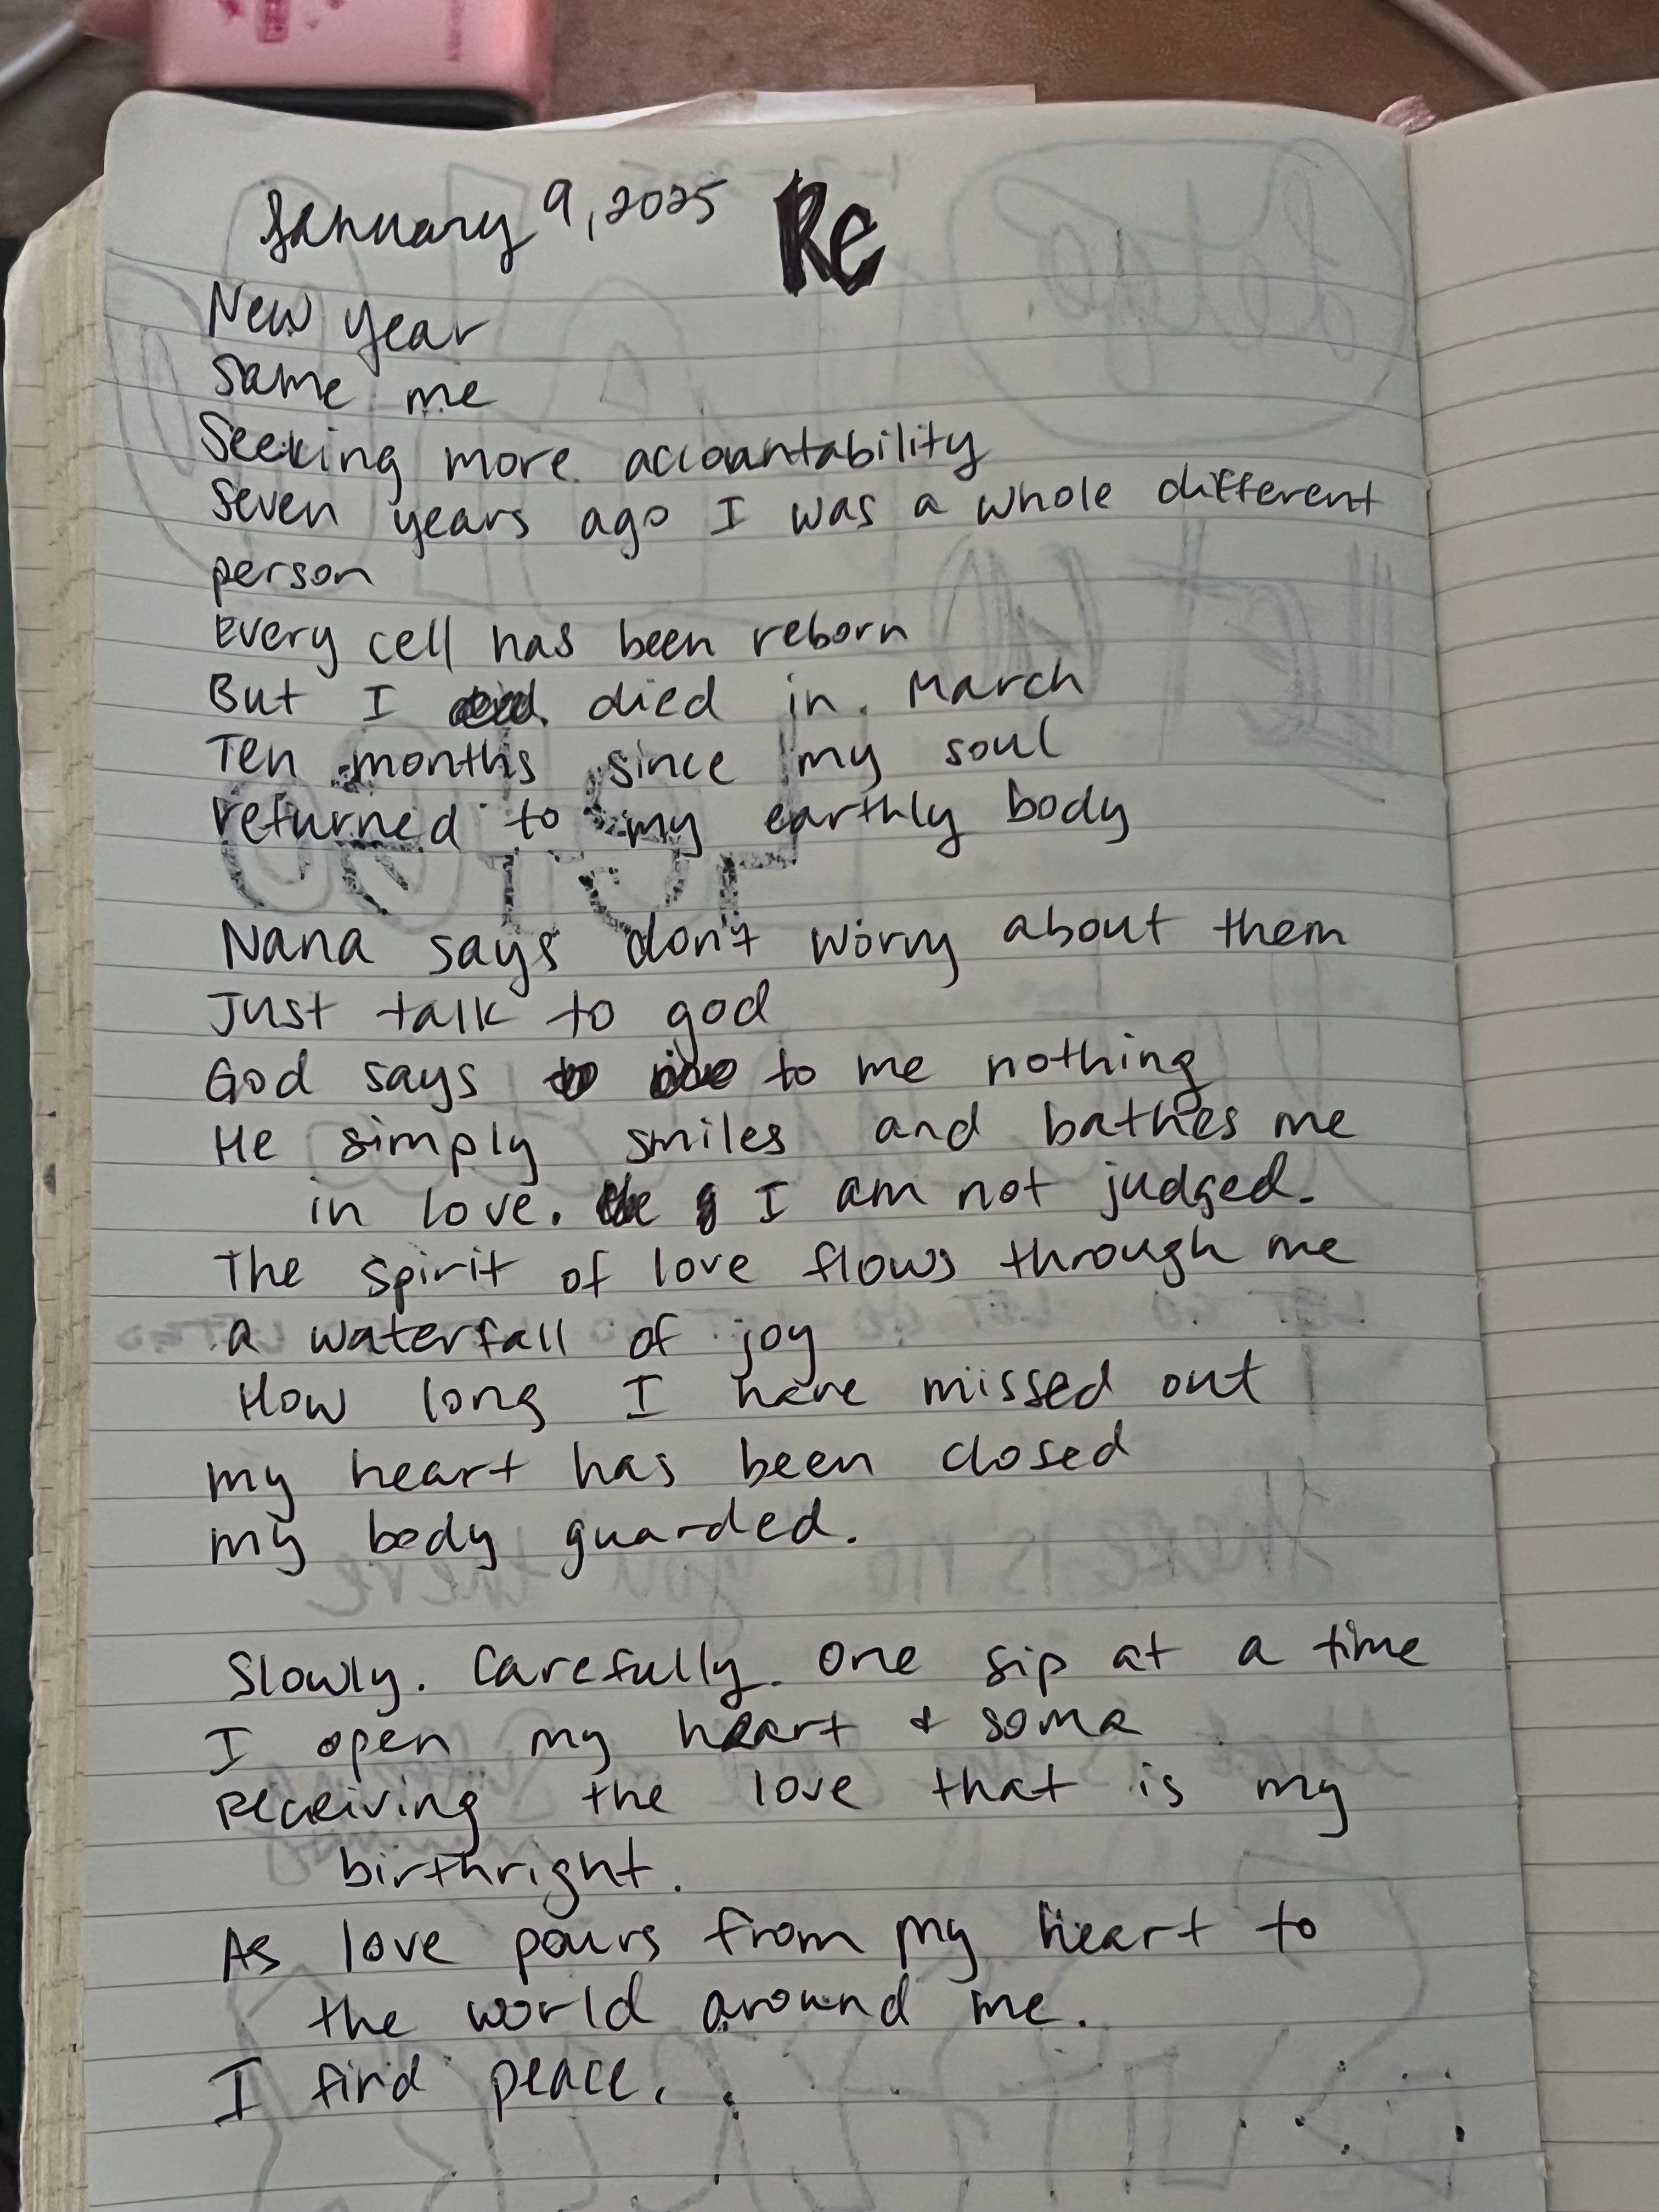 January 9, 2025 Re
New year
Same me
Seeking more accountability
Seven years ago I was a whole different
person
Every cell has been reborn
But I died in March
Ten months since my soul
returned to my earthly body
Nana says don't worry about them
Just talk to god
God says to me nothing
He simply smiles and bathes me
in love. I am not judged.
The spirit of love flows through me
a waterfall of joy
How long I have missed out
my heart has been closed
my body guarded.
Slowly. Carefully. One sip at a time
I open my heart & soma
Receiving the love that is my
birthright.
As love pours from my heart to
the world around me.
I find peace.